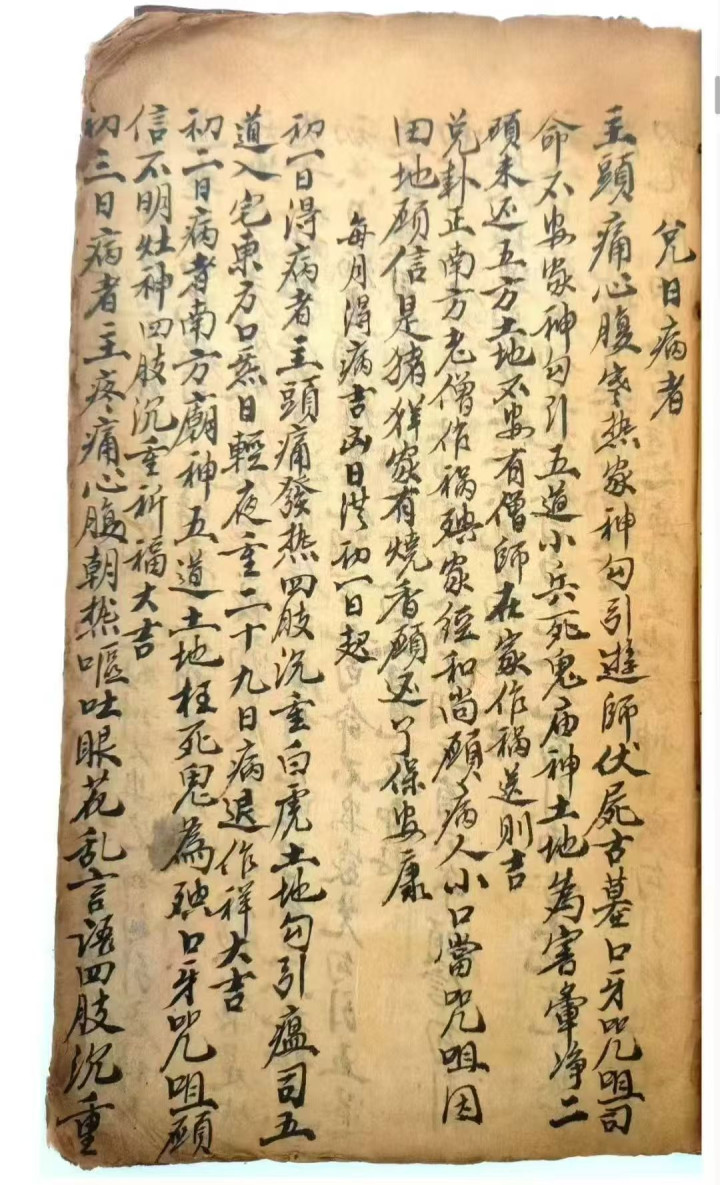 兌日病者
主頭痛心腹寒热家神勾引遊師伏屍古墓口牙咒咀司
命不安家神勾引五道小兵死鬼庙神土地為害牽净二
願未还五方土地不安有僧師在家作禍送則吉
兌卦正南方老僧作禍殃家經和尚願病人小口當咒咀因
田地願信是猪羊家有燒香願还了保安康
每月得病吉凶日洪初一日起
初一日得病者主頭痛發热四肢沉重白虎土地勾引瘟司五
道入宅東方口惹日輕夜重二十九日病退作祥大吉
初二日病者南方廟神五道土地枉死鬼為殃口牙咒咀願
信不明灶神四肢沉重祈福大吉
初三日病者主疼痛心腹朝热嘔吐眼花乱言語四肢沉重